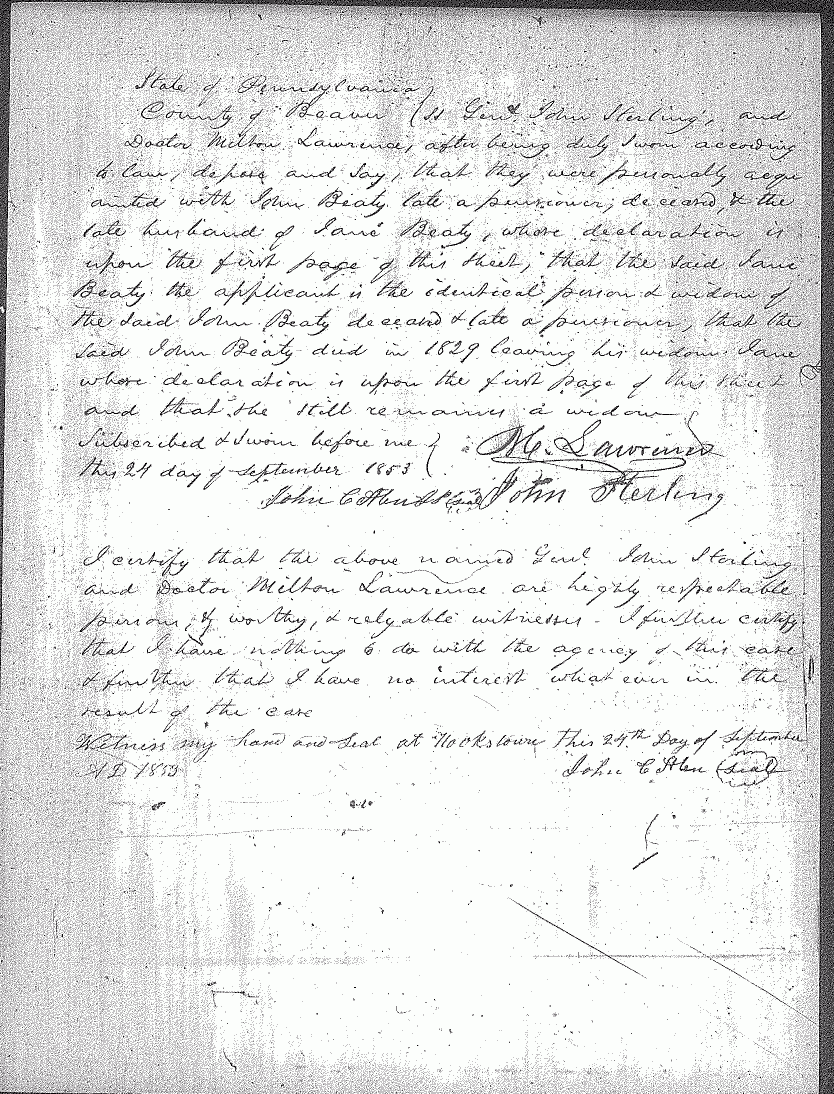 State of Pennsylvania
County of Beaver ( ss Genl. John Sterling, and
Doctor Milton Lawrence, after being duly sworn according
to law, depose and say, that they were personally acqu
ainted with John Beaty late a pensioner, deceased, & the
late husband of Jane Beaty, whose declaration is
upon the first page of this sheet, that the said Jane
Beaty the applicant is the identical person & widow of
the said John Beaty deceased & late a pensioner, that the
said John Beaty died in 1829 leaving his widow Jane
whose declaration is upon the first page of this sheet
and that she still remaines a widow
Subscribed & Sworn before me
this 24 day of September 1853
M. Lawrence
John Sterling
John C (seal)
I certify that the above named Genl. John Sterling
and Doctor Milton Lawrence are highly respectable
persons, & worthy, & relyable witnesses - I further certify
that I have nothing to do with the agency of this case
& further that I have no interest what ever in the
result of the case
Witness my hand and seal at Hookstown this 24th Day of September
AD 1853 John C (seal)